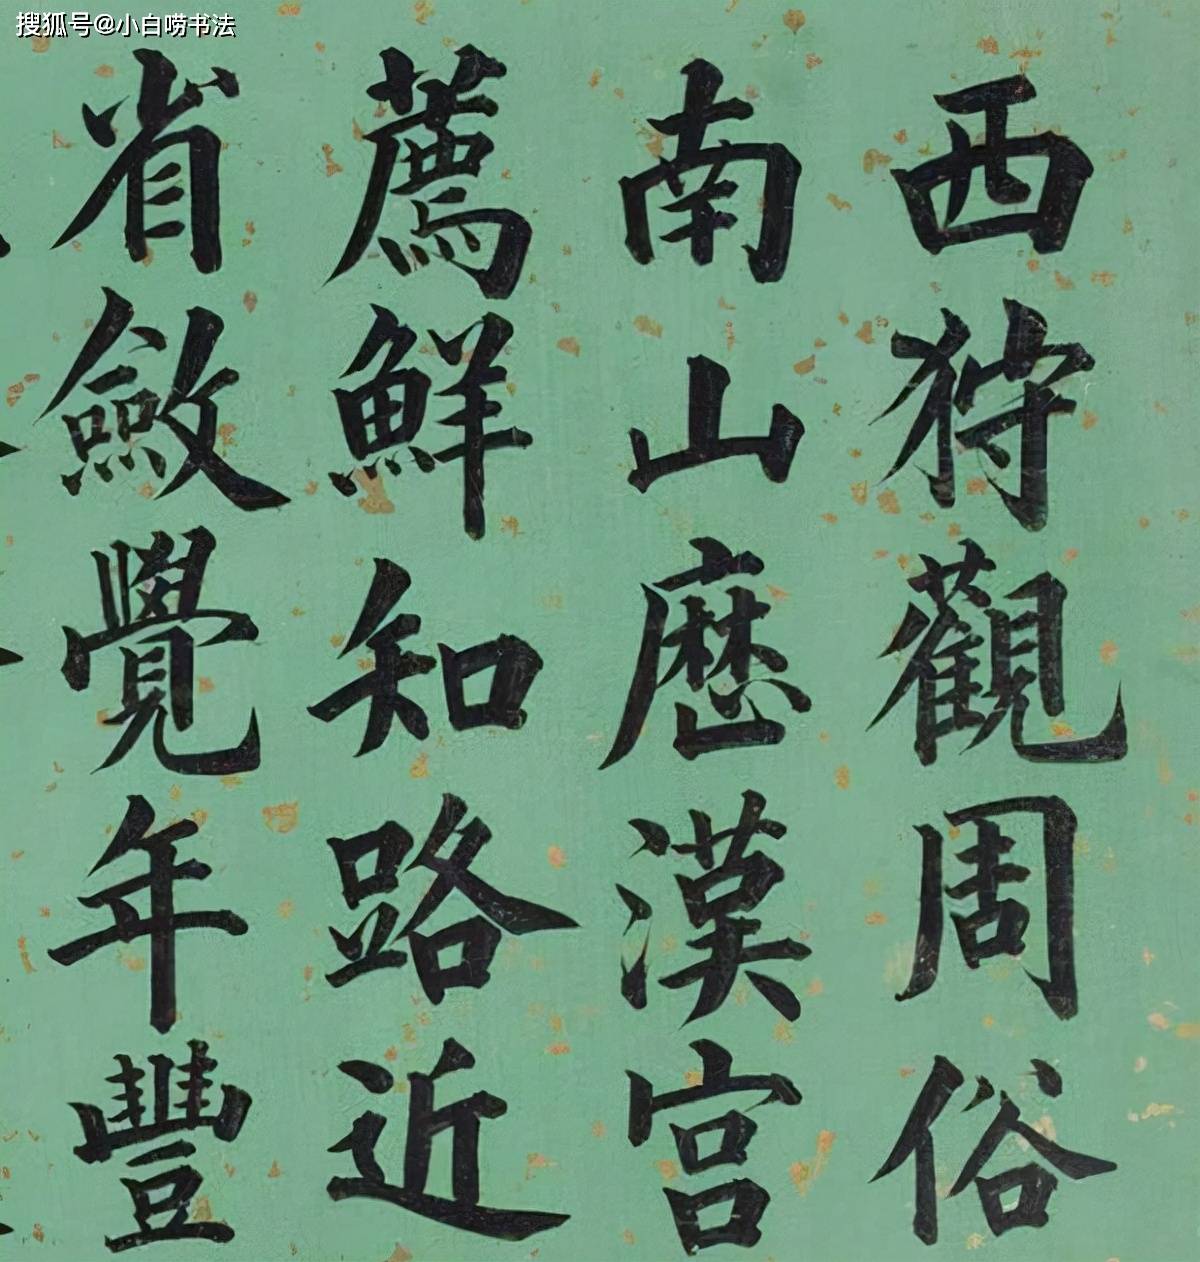 搜狐号@小白唠书法
西狩觀周俗
南山歷漢宮
薦鮮知路近
省斂覺年豐